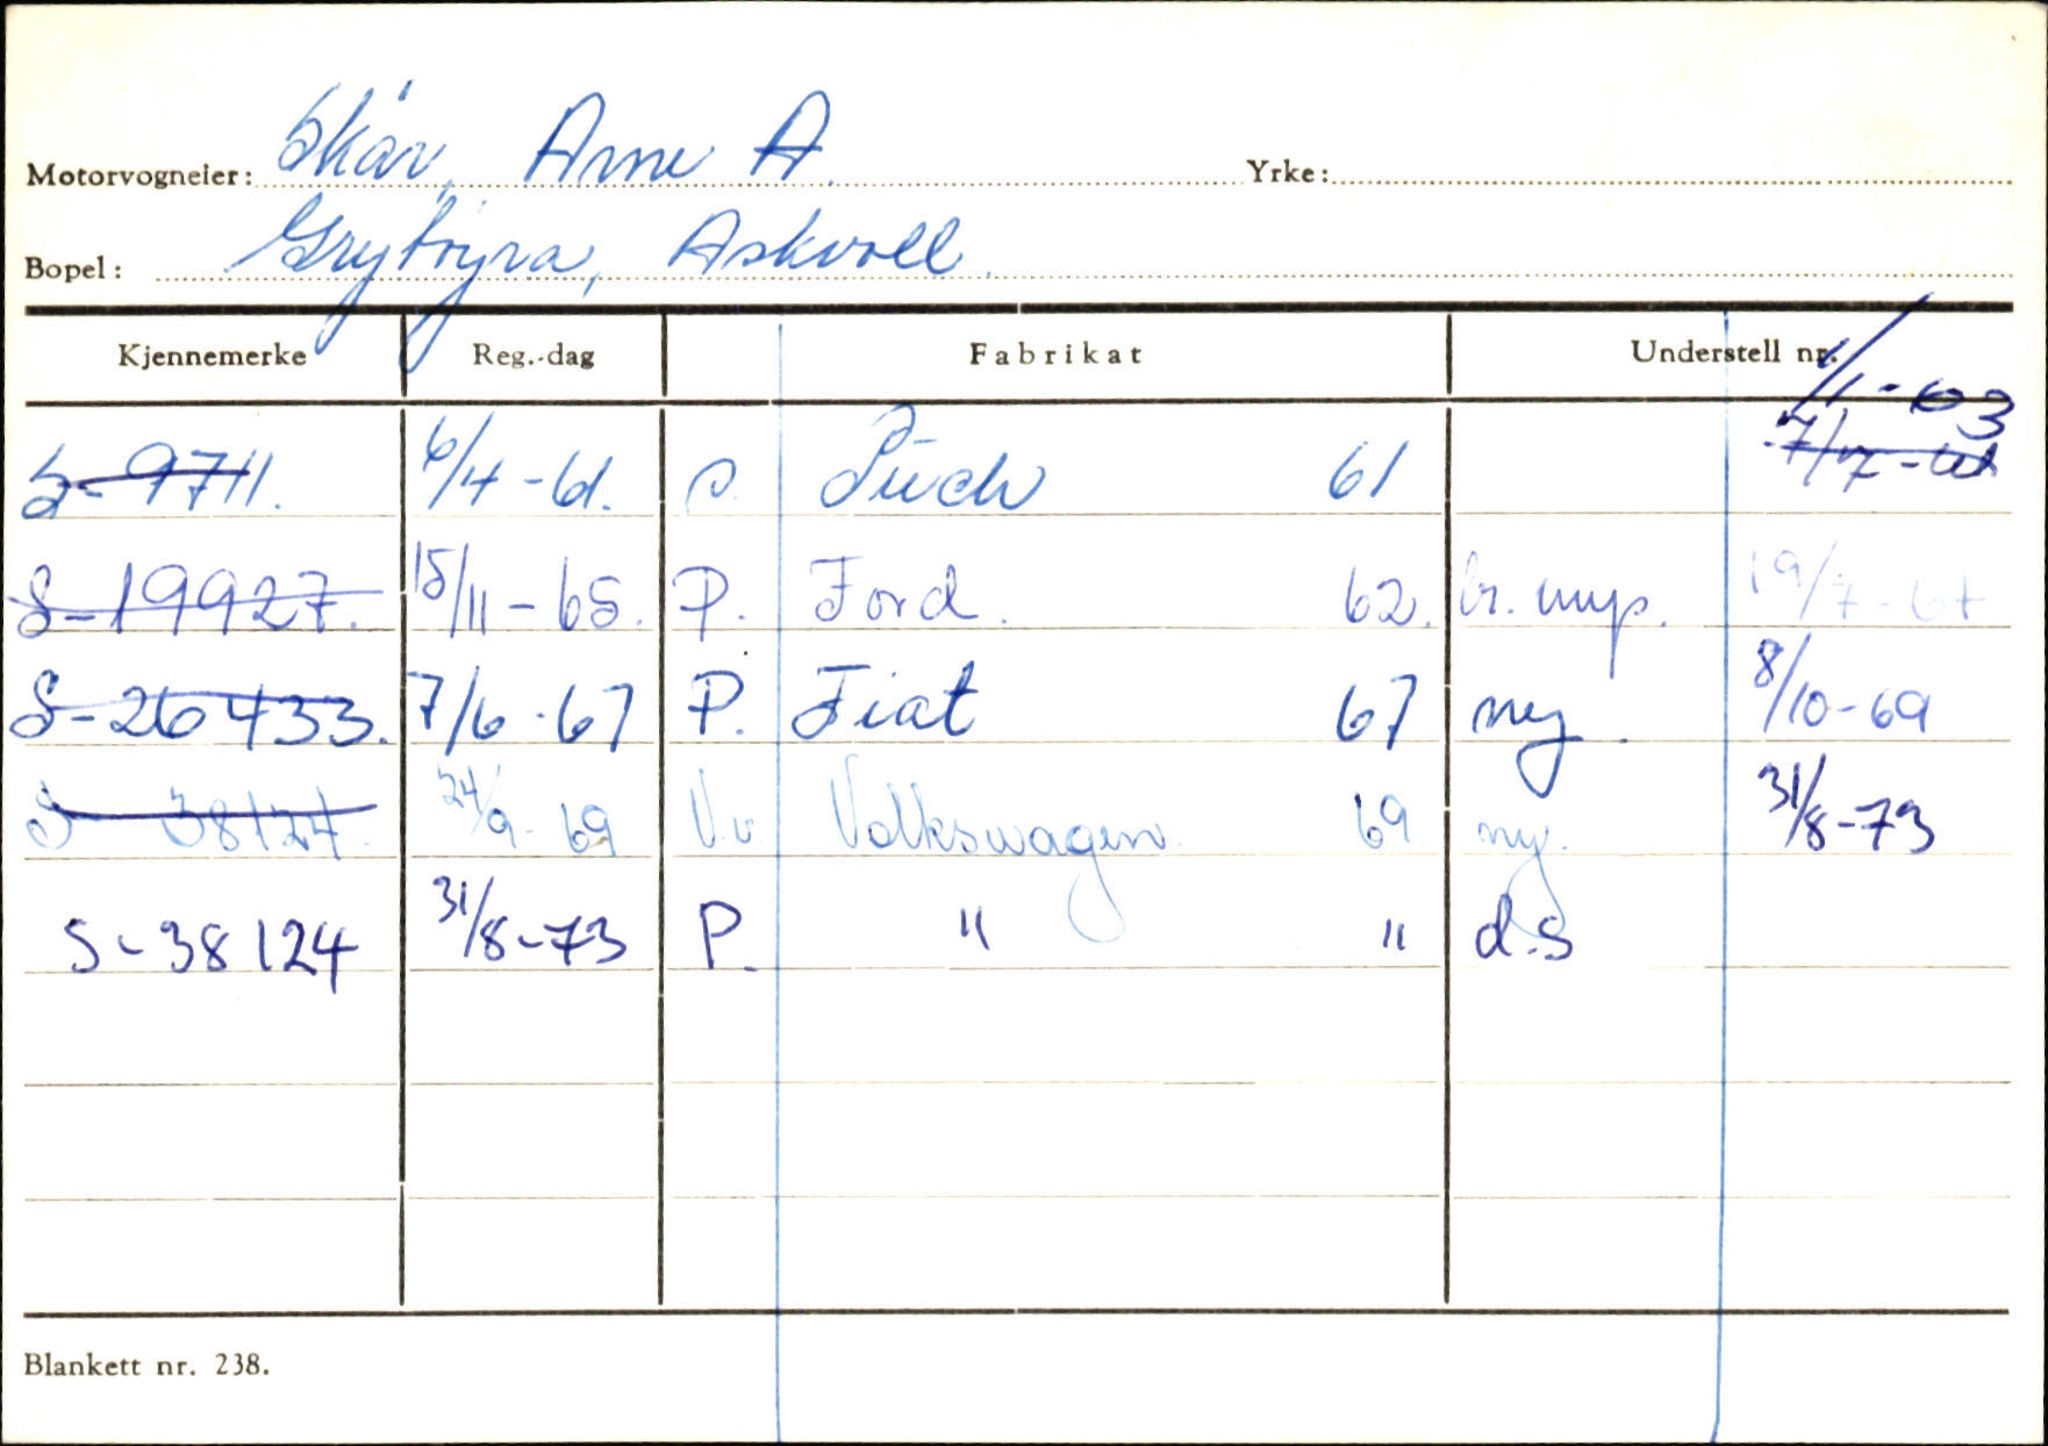 Motorvogneier: Skår, Arne A. Yrke:
Bopel: Grytøyra, Askvoll.
Kjennemerke Reg.-dag Fabrikat Understell nr.
1/1-63
S-9711. 6/4-61. Puch 61
S-19927. 15/11-65. P. Ford. 62. br. imp. 19/7-67
S-26433. 7/6-67 P. Fiat 67 ny. 8/10-69
S 38124. 24/9-69 V.v Volkswagen 69 ny. 31/8-73
S-38124 31/8-73 P. " " d.s
Blankett nr. 238.